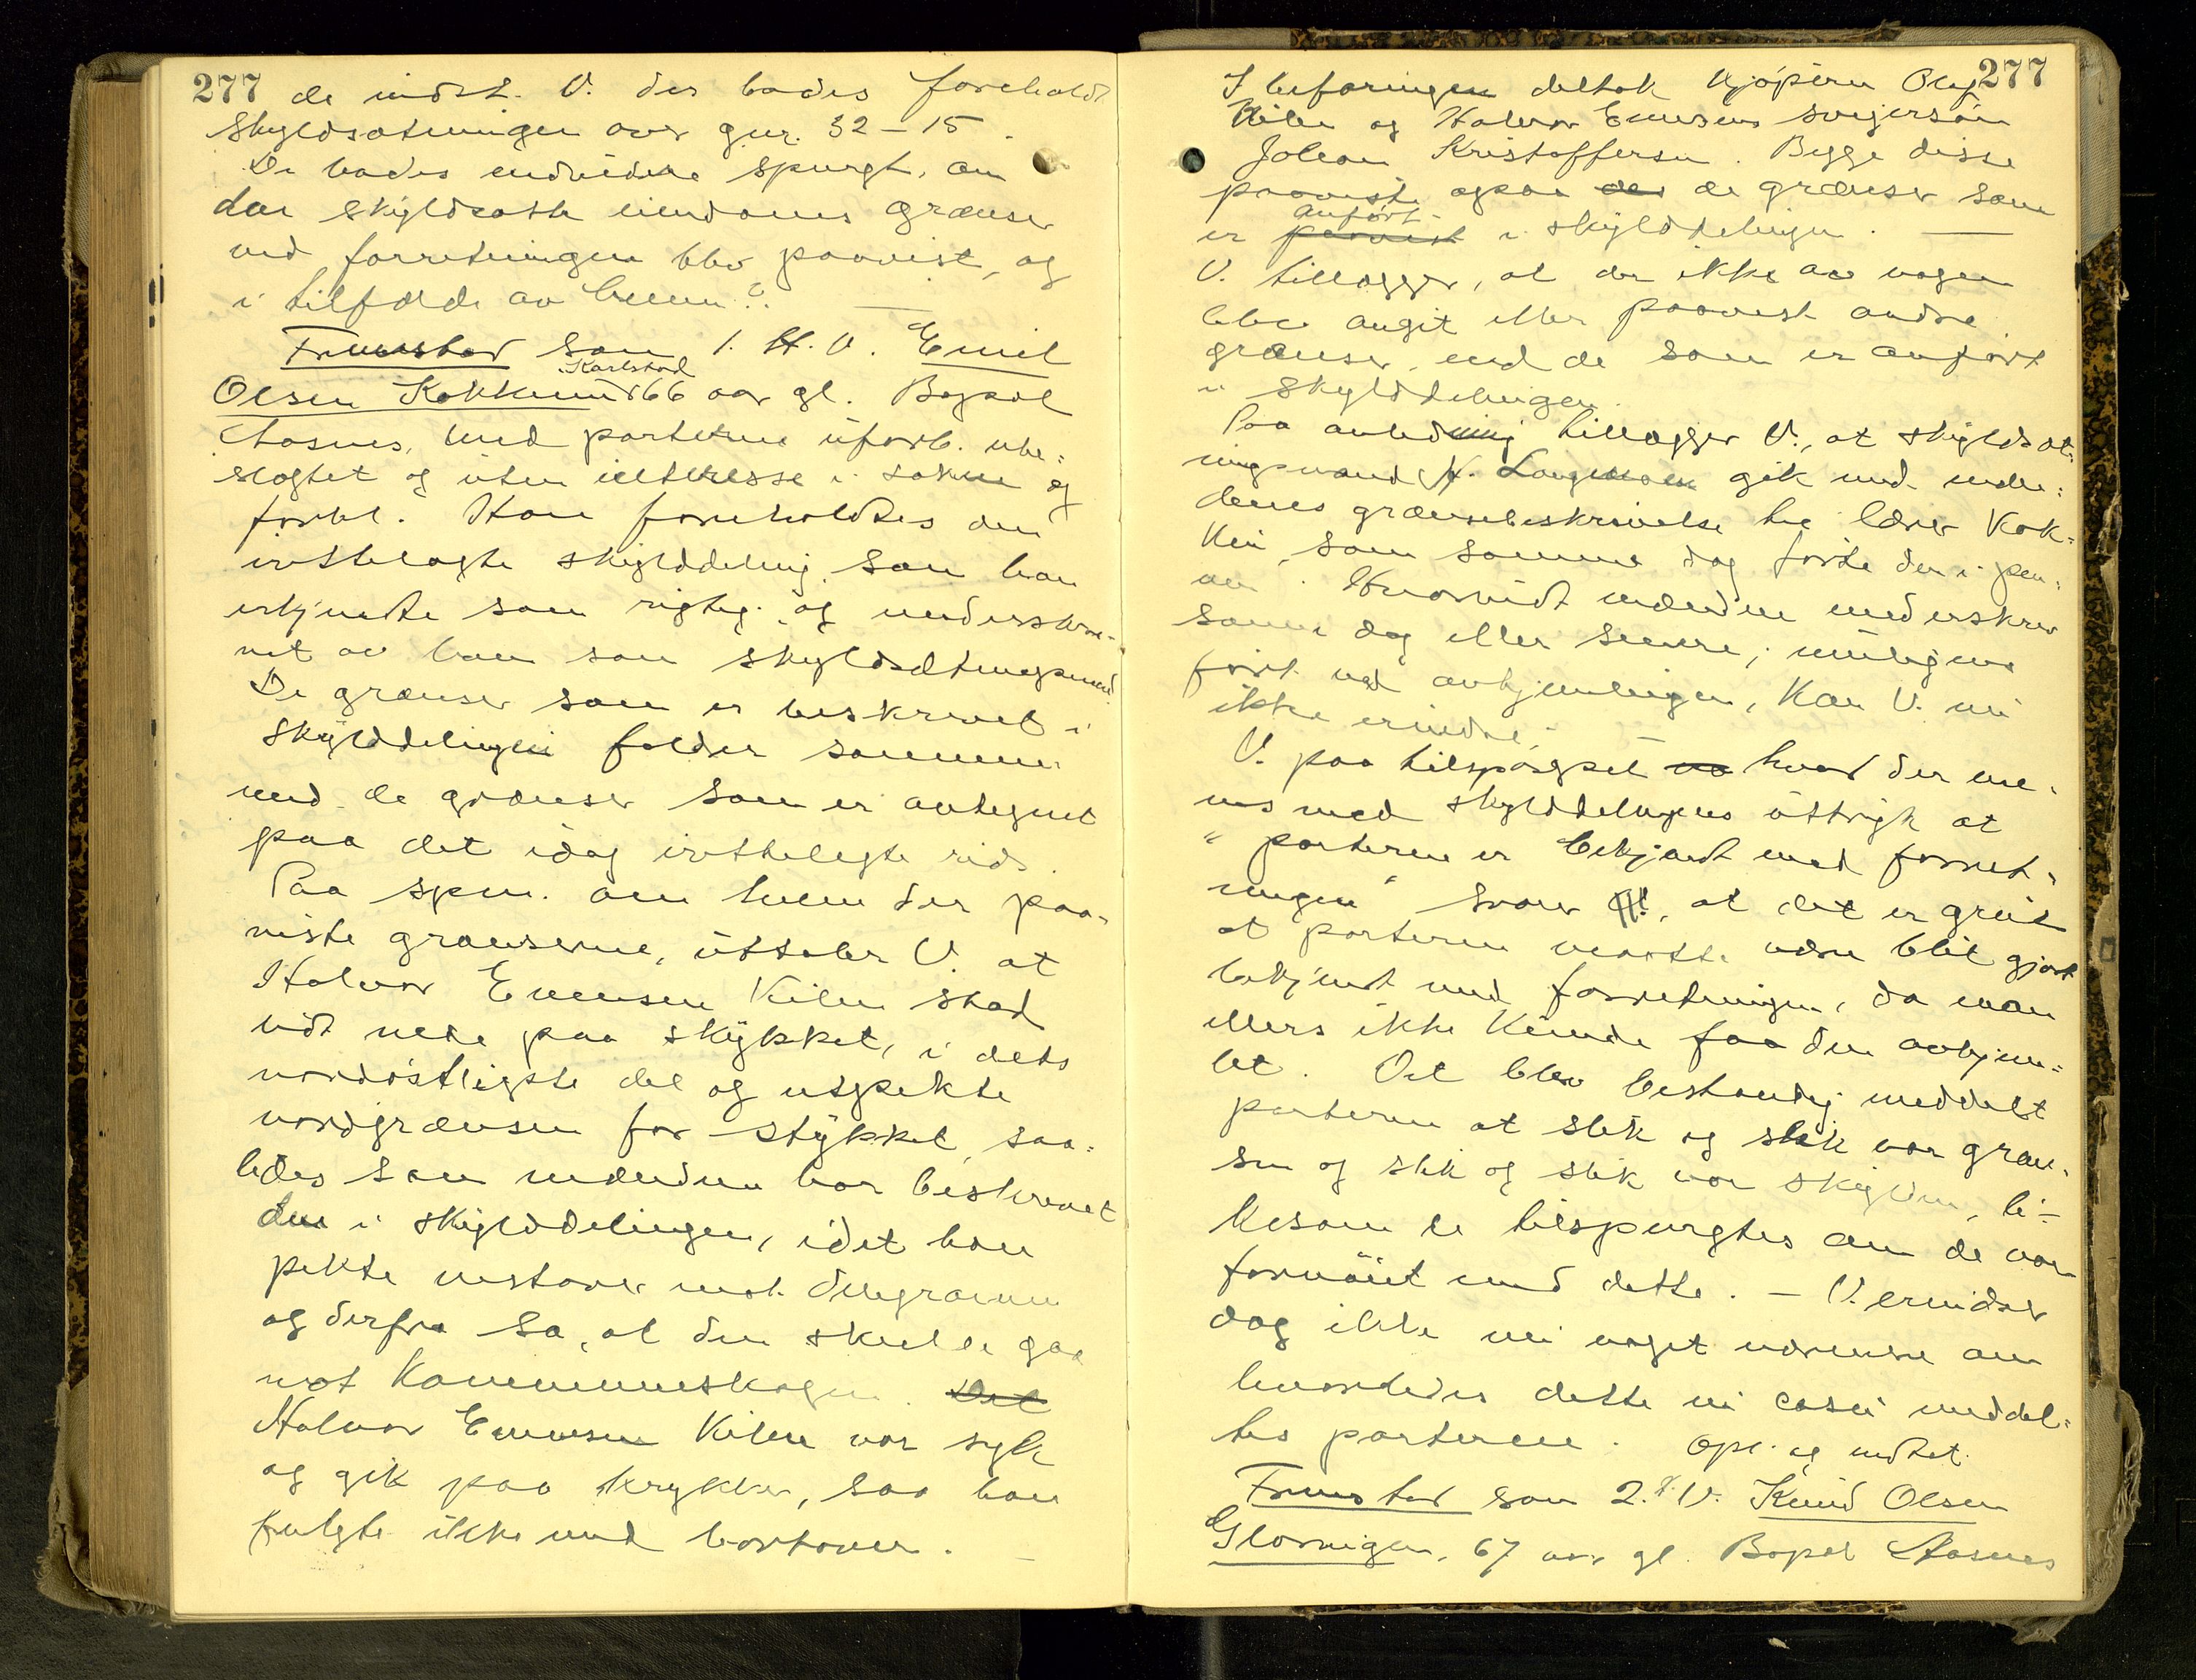 277 de indst. V. der bades foreholdt
skyldsætningen over gnr. 32 – 15.
De bades endvidere spurgt, om
den skyldsatte eiendoms grænser
ved forretningen blev paavist, og
i tilfælde av hvem?. —
Fremstod som 1. H. V. Emil
Karlstad
Olsen Kokkum 66 aar gl. Bopæl
Aasnes, med parterne uforb. ube-
slægtet og uten interesse i saken og
forbl. Han foreholdtes den
irettelagte skylddeling, som han
erkjendte som rigtig og underskre-
vet av ham som skyldsætningsmand
De grænser som er beskrevet i
skylddelingen falder sammen
med de grænser som er avtegnet
paa det idag irettelegte rids.
Paa spm. om hvem der paa-
viste grænserne, uttaler V. at
Halvor Evensen Kilen stod
vidt nede paa stykket, i dets
nordøstligste del og utpekte
nordgrænsen for stykket, saa-
ledes som mændene har beskrevet
den i skylddelingen, idet han
pekte vestover mot
og derfra sa, at den skulde gaa
mot Kommuneskogen. Det
Halvor Evensen Kilen var syk
og gik paa krykker, saa han
fulgte ikke med bortover. —
277
I befaringen deltok kjøperen Olaf
Kilen og Halvor Evensens svigersøn
Johan Kristoffersen. Begge disse
paaviste ogsaa des de grænser som
anført
er paavist i skylddelingen. —
V. tillægger, at der ikke av nogen
blev angit eller paavist andre
grænser, end de som er anført
i skylddelingen.
Paa anledning tillægger V., at skyldsæt-
ningsmand H. gik med mæn-
denes grænsebeskrivelse til lærer Kok-
kin, som samme dag førte den i pen-
nen. Hvorvidt mændene underskrev
samme dag eller senere, muligens
først ved avhjemlingen, kan V. nu
ikke erindre. —
V. paa tilspørgsel va hvad der me-
nes med skylddelingens uttryk at
"parterne er bekjendt med forret-
ningen", svarer V., at det er greit
at parterne maatte være blit gjort
bekjendt med forretningen, da man
ellers ikke kunde faa den avhjem-
let. Det blev bestandig meddelt
parterne at slik og slik var græn-
sen og slik og slik var skylden, li-
kesom de tilspurgtes om de var
fornøiet med dette. — V. erindrer
dog ikke nu noget nærmere om
hvorledes dette in casu meddel-
tes parterne. Opl. og vedtat.
Fremstod som 2. V. Knud Olsen
Glorvigen, 67 aar gl. Bopæl Aasnes